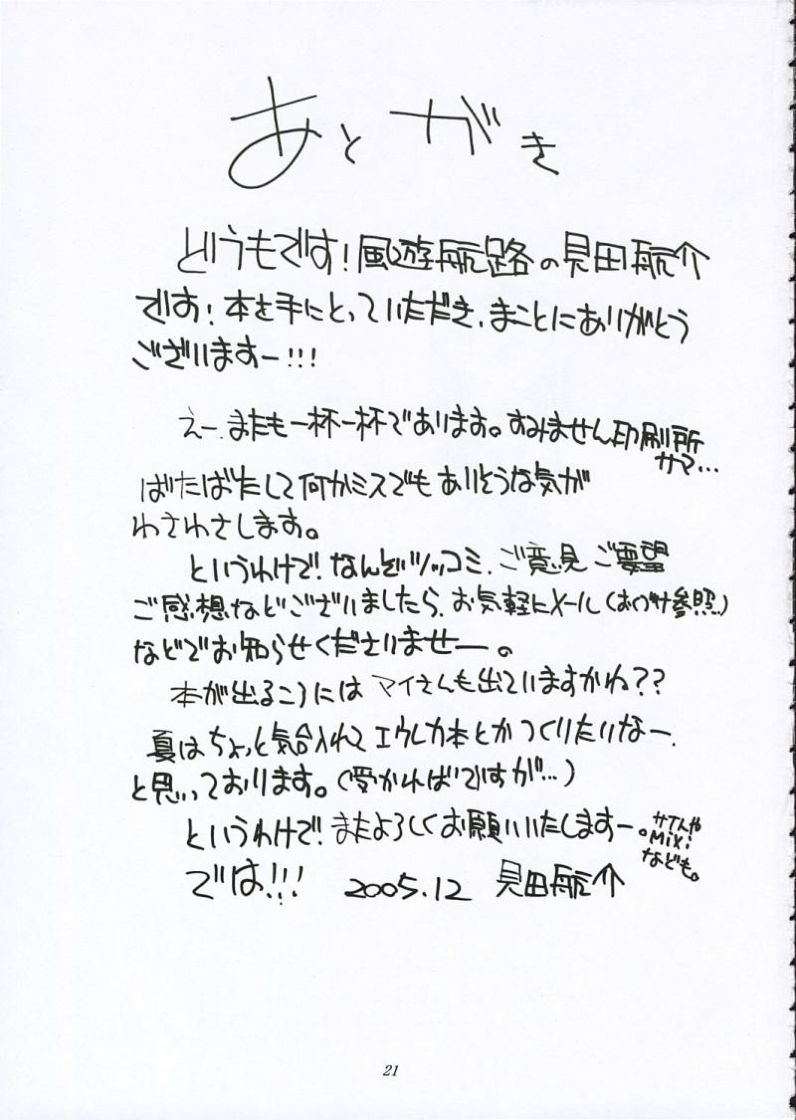 あとがき
どうもです！風遊航路の見田航介
です！本を手にとっていただき、まことにありがとう
ございますー!!!
えー、またも一杯一杯であります。すみません印刷所
サマ…
ばたばたして何かミスでもありそうな気が
わさわさします。
というわけで！なんぞツッコミ、ご意見ご要望
ご感想などございましたら、お気軽にメール（おくづけ参照）
などでお知らせくださいませー。
本が出るころにはマイさんも出ていますかね？？
夏はちょっと気合入れてエウレカ本とかつくりたいなー、
と思いっております。（受かればですが…）
というわけで！またよろしくお願いいたしますー。
サイトや
Mixi
なども。
では!!! 2005.12 見田航介
21